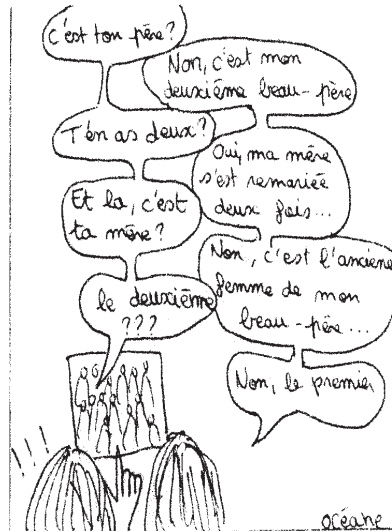 c'est ton père?
Non, c'est mon
deuxième beau-père
T'en as deux?
Oui, ma mère
s'est remariée
deux fois...
Et la, c'est
ta mère?
Non, c'est l'anciene
femme de mon
beau-père...
le deuxième
???
Non, le premier
océane